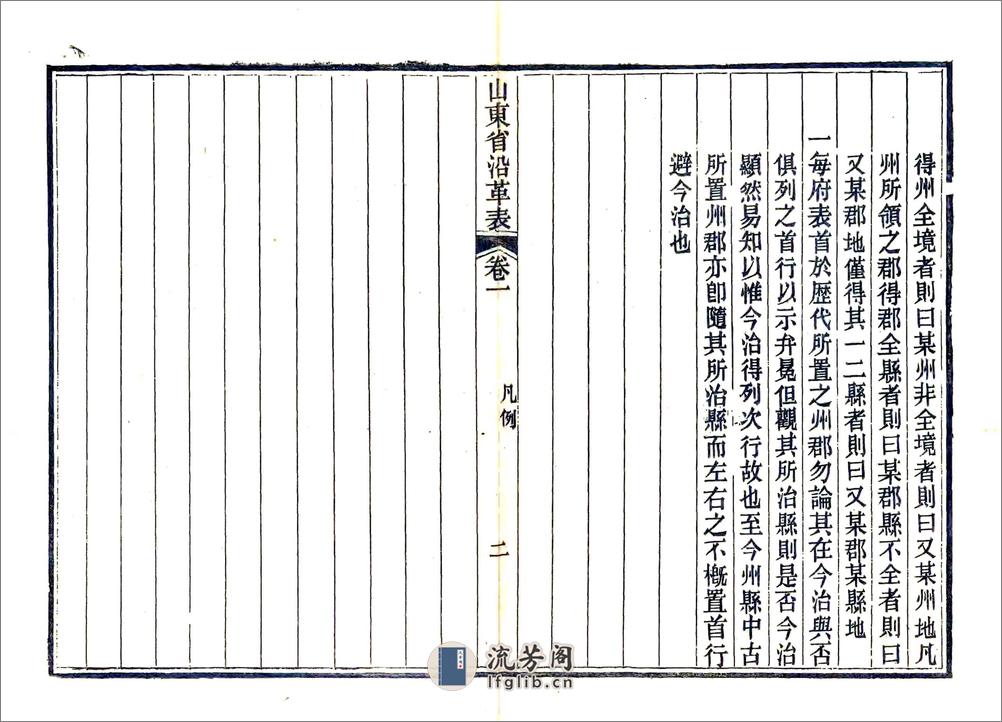 得州全境者則曰某州非全境者則曰又某州地凡
州所領之郡得郡全縣者則曰某郡縣不全者則曰
又某郡地僅得其一二縣者則曰又某郡某縣地
一每府表首於歷代所置之州郡勿論其在今治與否
俱列之首行以示弁冕但觀其所治縣則是否今治
顯然易知以惟今治得列次行故也至今州縣中古
所置州郡亦卽隨其所治縣而左右之不槪置首行
避今治也
山東省沿革表
卷一
凡例
二
流芳阁
lfglib.cn